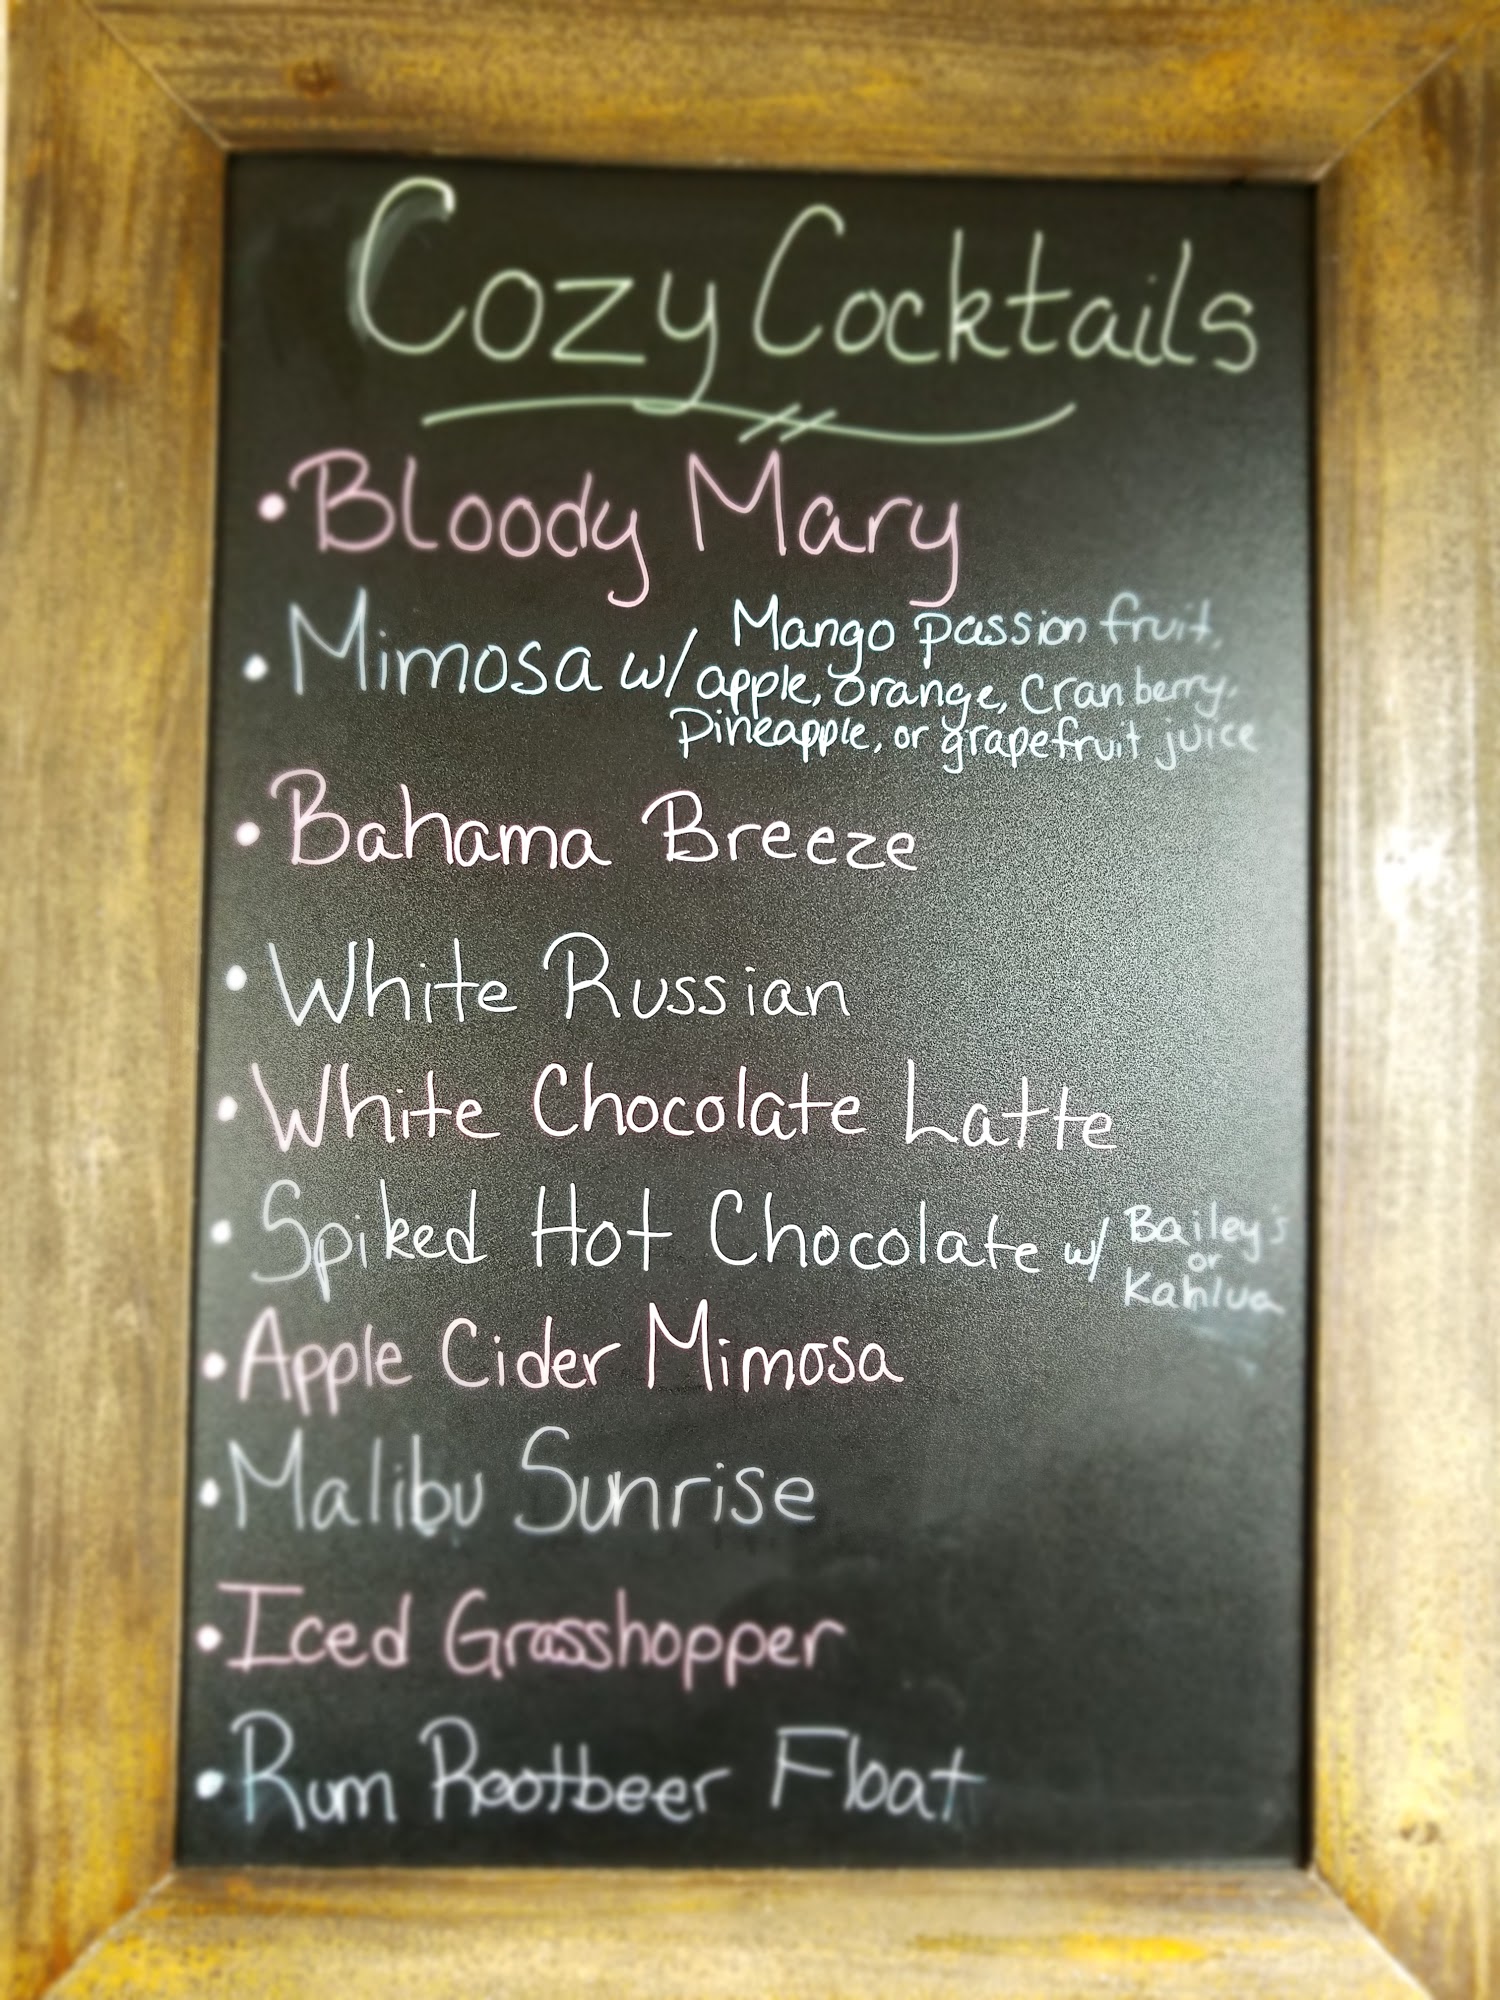 Cozy Cocktails
• Bloody Mary
• Mimosa w/ Mango passion fruit,
apple, orange, Cranberry,
Pineapple, or grapefruit juice
• Bahama Breeze
• White Russian
• White Chocolate Latte
• Spiked Hot Chocolate w/ Bailey's
or
Kahlua
• Apple Cider Mimosa
• Malibu Sunrise
• Iced Grasshopper
• Rum Rootbeer Float